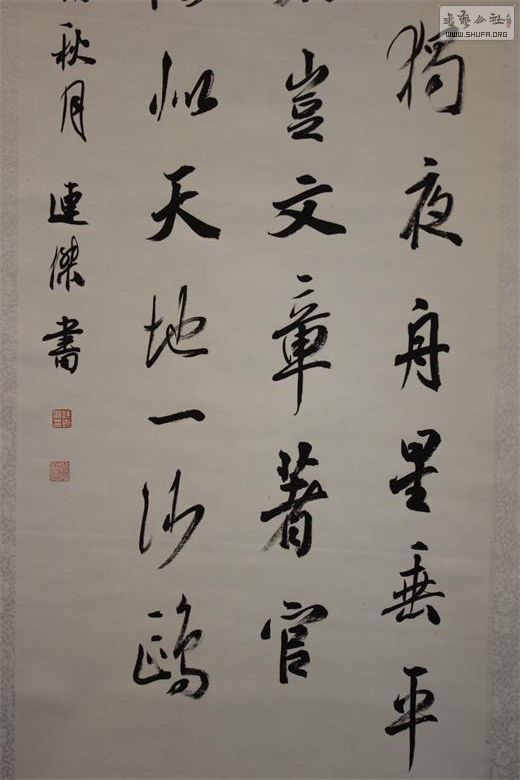 獨夜舟星垂平
豈文章著官
似天地一沙鷗
秋月 連傑書
書藝公社
WWW.SHUFA.ORG